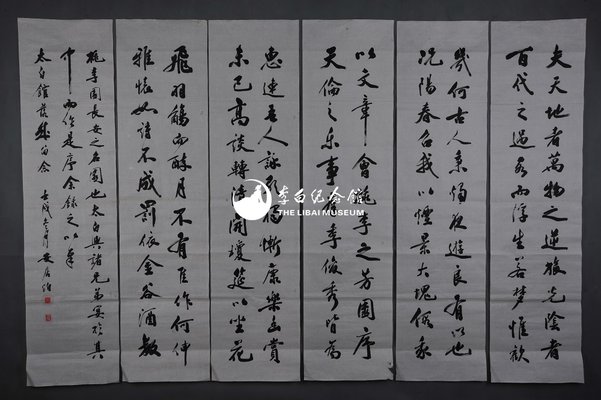 夫天地者萬物之逆旅光陰者
百代之過客而浮生若梦惟歡
幾何古人秉燭夜遊良有以也
况陽春召我以煙景大塊假我
以文章會桃李之芳園序
天倫之乐事群季俊秀皆為
惠連吾人詠歌獨慚康樂幽賞
未已高談轉清開瓊筵以坐花
飛羽觴而醉月不有佳作何伸
雅懷如詩不成罰依金谷酒數
桃李園長安之名園也太白與諸兄弟宴於其
中而作是序余録之以
太白館 壬戌冬月
李白纪念館
THE LIBAI MUSEUM